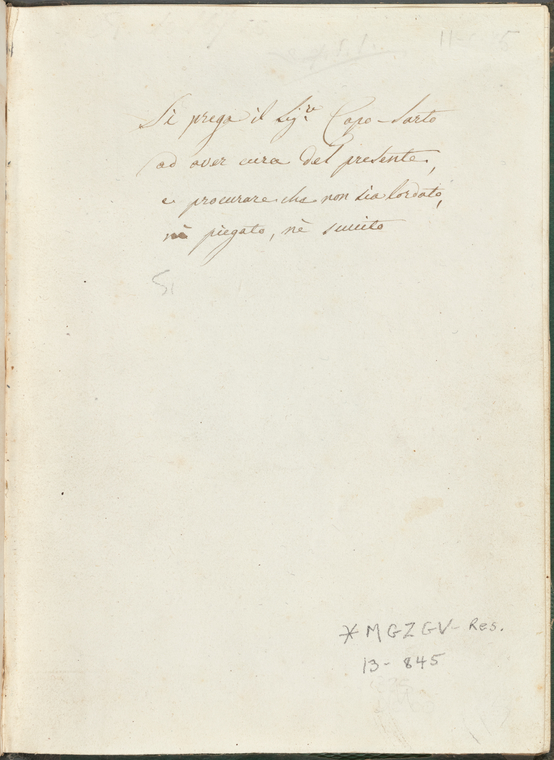 Si prega il Sig.re Capo-Sarto
ad aver cura del presente,
e procurare che non sia lordato,
nè piegato, nè
Si
*MGZGV-Res.
13-845